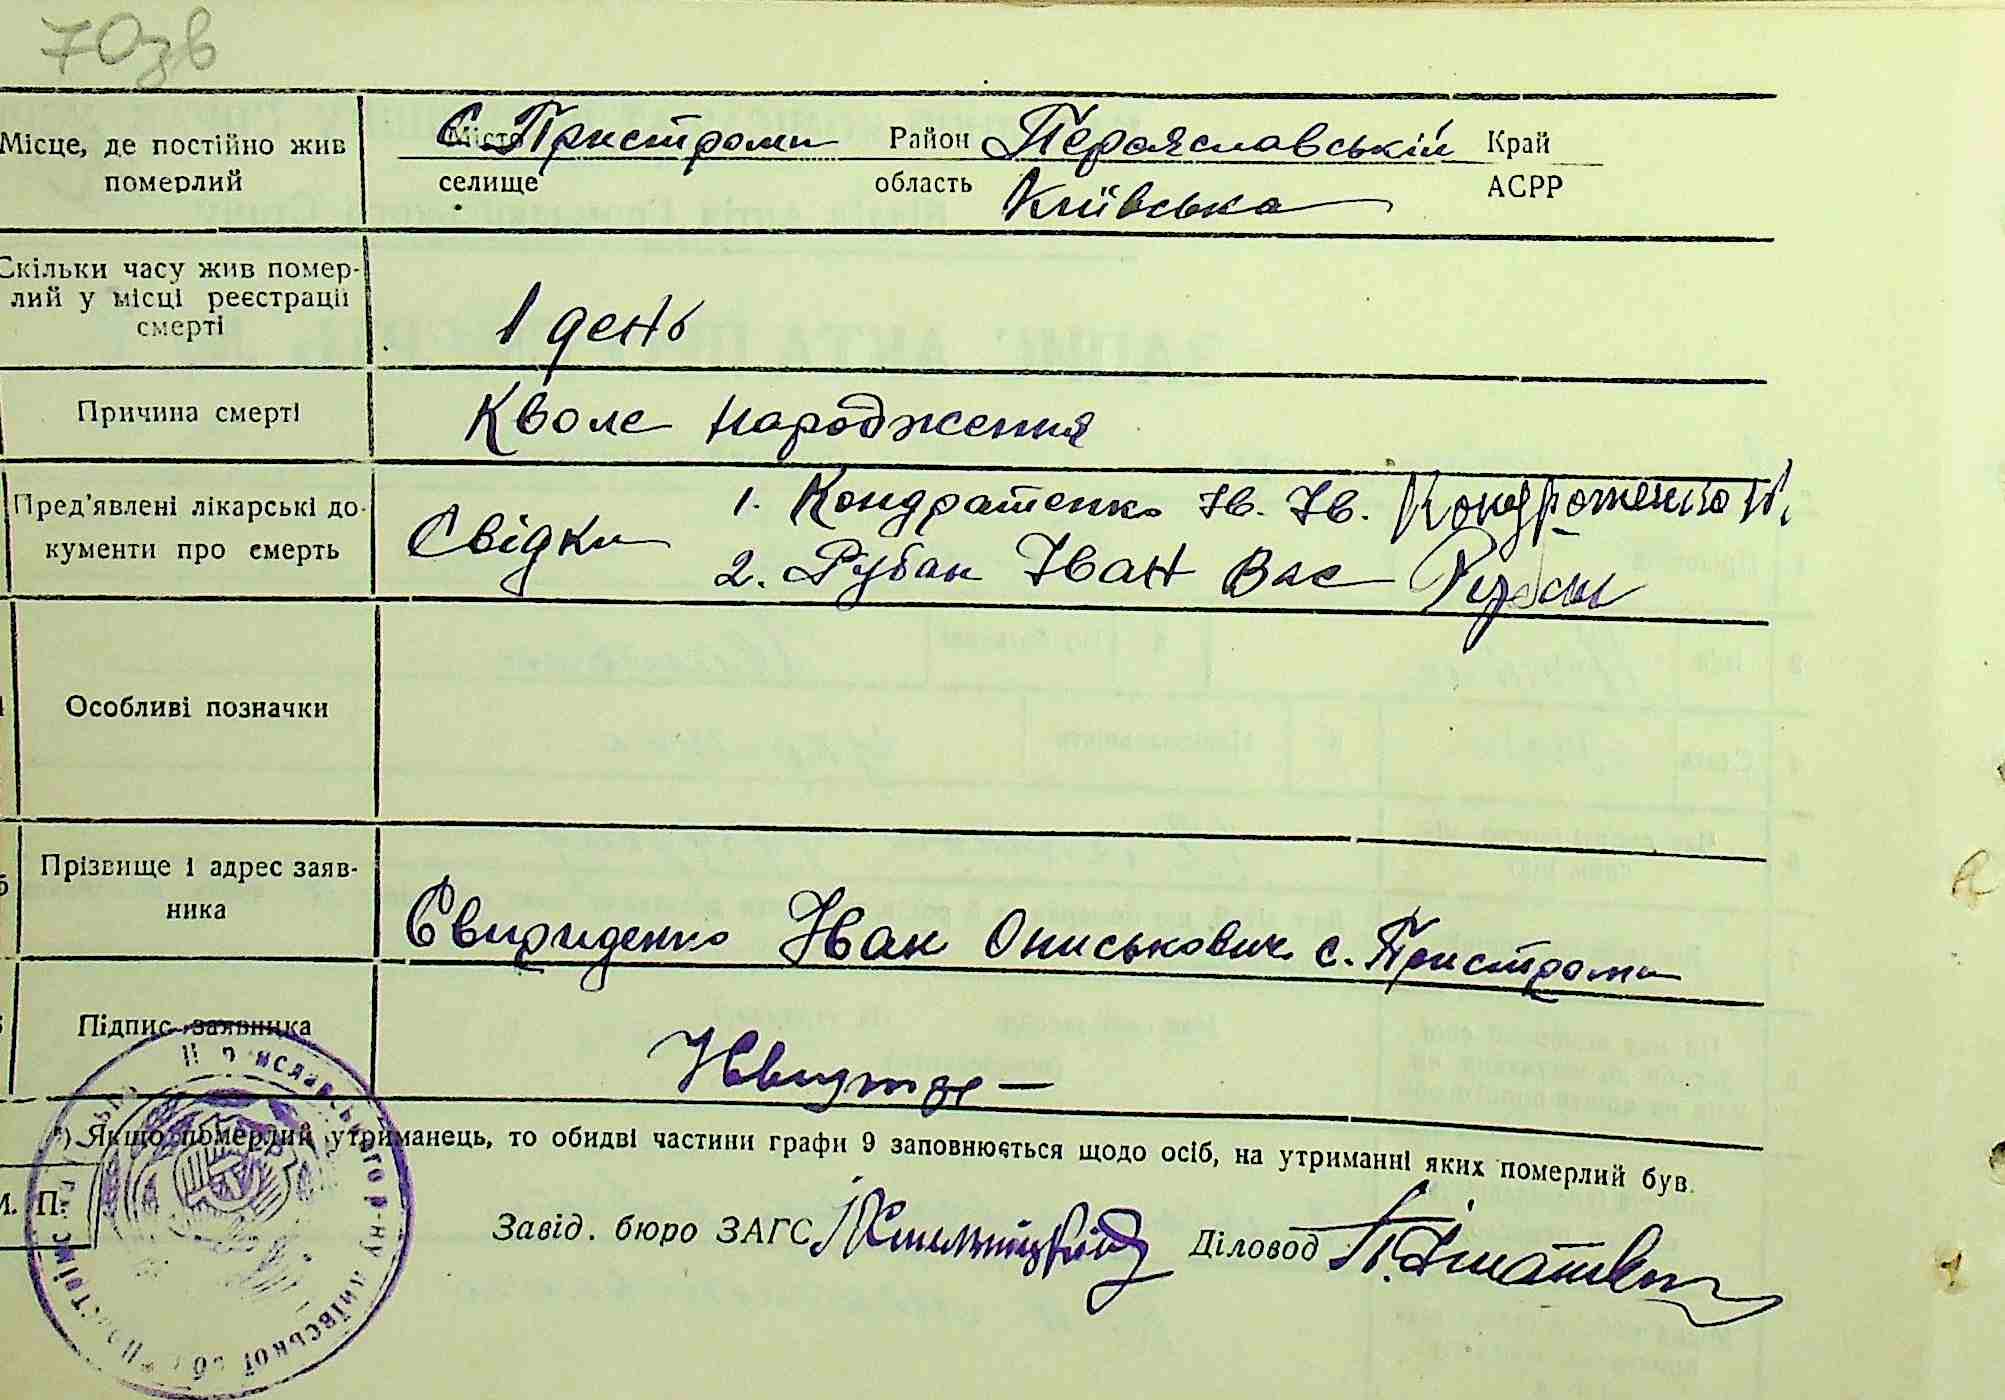 70зв
Місце, де постійно жив
померлий
Місто с. Пристроми Район Переяславський Край
селище область Київська АСРР
Скільки часу жив помер-
лий у місці реєстрації
смерті
1 день
Причина смерті
Кволе народження
Пред'явлені лікарські до-
кументи про смерть
Свідки 1. Кондратенко Ів. Ів. Кондратенко
2. Рубан Іван Вас Рубан
Особливі позначки
Прізвище і адрес заяв-
ника
Свириденко Іван Ониськович с. Пристроми
Підпис заявника
*) Якщо померлий утриманець, то обидві частини графи 9 заповнюється щодо осіб, на утриманні яких померлий був.
М. П.
Завід. бюро ЗАГС Діловод